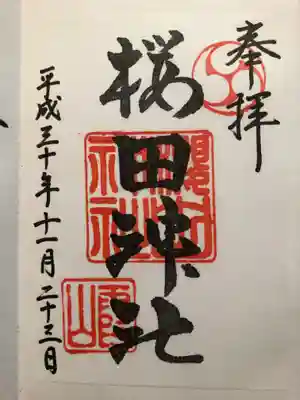 奉拝
桜田神社
平成三十年十一月二十三日